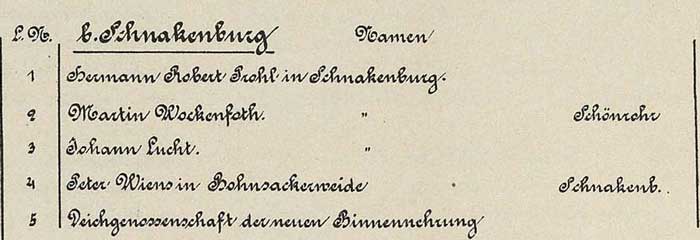 L.N. b. Schnakenburg Namen
1 Hermann Robert Prohl in Schnakenburg.
2 Martin Wockenfoth. " Schönrohr
3 Johann Lucht. "
4 Peter Wiens in Bohnsackerweide Schnakenb.
5 Deichgenossenschaft der neuen Binnennehrung